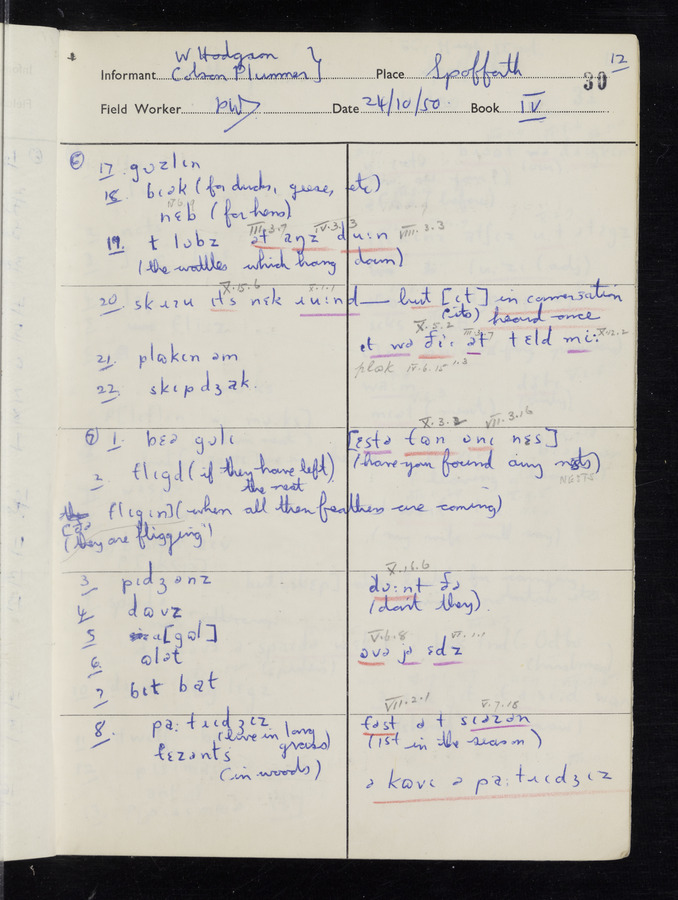 W Hodgson
12
Informant Colson Plummer Place Spofforth 30
Field Worker PW Date 24/10/50. Book IV
⑥ 17. gɒzlɪn
18. bɪək (for ducks, geese, etc)
nɛb (for hens)
III.3.7 IV.3.3 VIII.3.3
19. t lɒbz ət ɪŋz du:n
(the wattles which hang down)
X.15.6 X.1.1
20. skɹɹu ɪts nɛk ɹu:nd — but [ɪt] in conversation
(its) heard once
X.5.2 III.3.7 X.12.2
ət wə ði: ət tɛld mi:
21. plɷkɪn əm
plɷk IV.6.15 1.3
22. skɛpdʒak.
X.3.2 VII.3.16
⑦ 1. bɛə gɒlɪ [ɛstə fɷn ɒnɪ nɛs]
2. flɪgd (if they have left) (have you found any nests)
the nest NESTS
flɪgɪn] (when all then feathers are coming)
(they are fligging")
X.16.6
3 pɪdʒənz du:nt ðə
4 dɷvz (don't they).
5 [gɷl] V.6.8 VI.1.1
6 ɷlət ɷvə jə ɛdz
7 bɪt bat
VII.2.1 V.7.15
8. pa:tɹɪdʒɪz fəst ə t sɪəzən
(live in long (1st in the season)
grass)
fɛzənts
(in woods) ə kɷvɪ ə pa:tɹɪdʒɪz